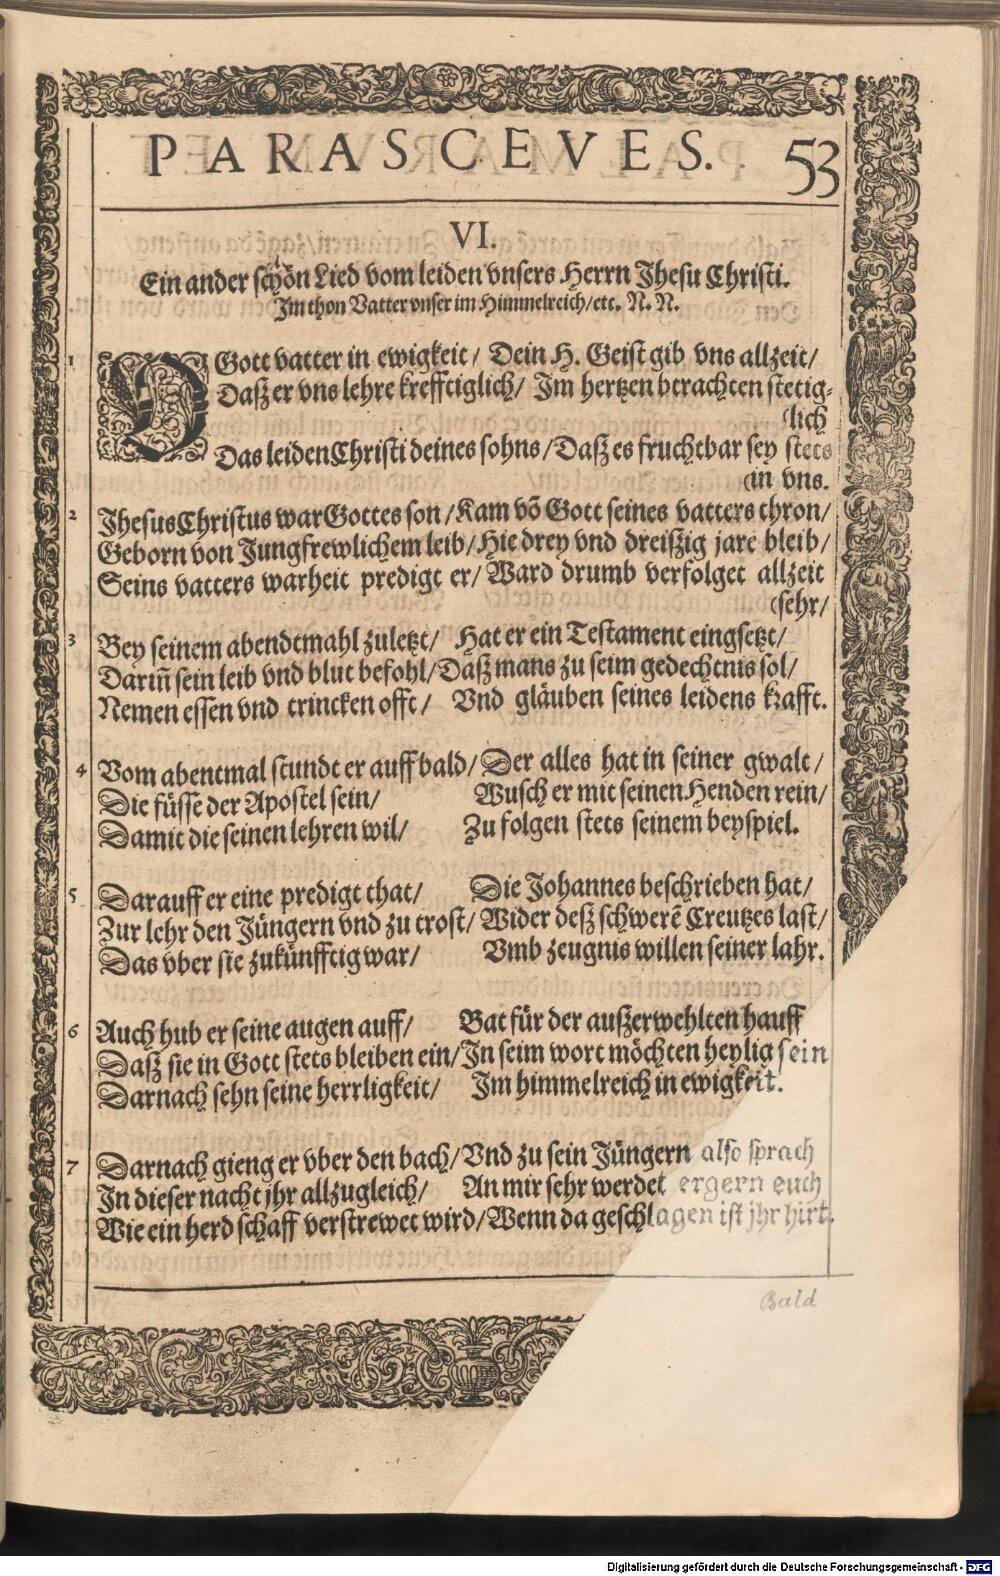 PARASCEVES. 53
VI.
Ein ander schön Lied vom leiden vnsers Herrn Jhesu Christi.
Im thon Vatter vnser im Himmelreich/ etc. N. N.
1 O Gott vatter in ewigkeit/ Dein H. Geist gib vns allzeit/
Daß er vns lehre krefftiglich/ Im hertzen betrachten stetig-
(lich
Das leiden Christi deines sohns/ Daß es fruchtbar sey stets
(in vns.
2 Jhesus Christus war Gottes son/ Kam võ Gott seines vatters thron/
Geborn von Jungfrewlichem leib/ Hie drey vnd dreißig jare bleib/
Seins vatters warheit predigt er/ Ward drumb verfolget allzeit
(sehr/
3 Bey seinem abendtmahl zuletzt/ Hat er ein Testament eingsetzt/
Dariñ sein leib vnd blut befohl/ Daß mans zu seim gedechtnis sol/
Nemen essen vnd trincken offt/ Vnd gläuben seines leidens krafft.
4 Vom abentmal stundt er auff bald/ Der alles hat in seiner gwalt/
Die füsse der Apostel sein/ Wusch er mit seinen Henden rein/
Damit die seinen lehren wil/ Zu folgen stets seinem beyspiel.
5 Darauff er eine predigt that/ Die Johannes beschrieben hat/
Zur lehr den Jüngern vnd zu trost/ Wider deß schwerẽ Creutzes last/
Das vber sie zukünfftig war/ Vmb zeugnis willen seiner lahr.
6 Auch hub er seine augen auff/ Bat für der außerwehlten hauff
Daß sie in Gott stets bleiben ein/ In seim wort möchten heylig sein
Darnach sehn seine herrligkeit/ Im himmelreich in ewigkeit.
7 Darnach gieng er vber den bach/ Vnd zu sein Jüngern also sprach
In dieser nacht jhr allzugleich/ An mir sehr werdet ergern euch
Wie ein herd schaff verstrewet wird/ Wenn da geschlagen ist jhr hirt.
Bald
Digitalisierung gefördert durch die Deutsche Forschungsgemeinschaft - DFG